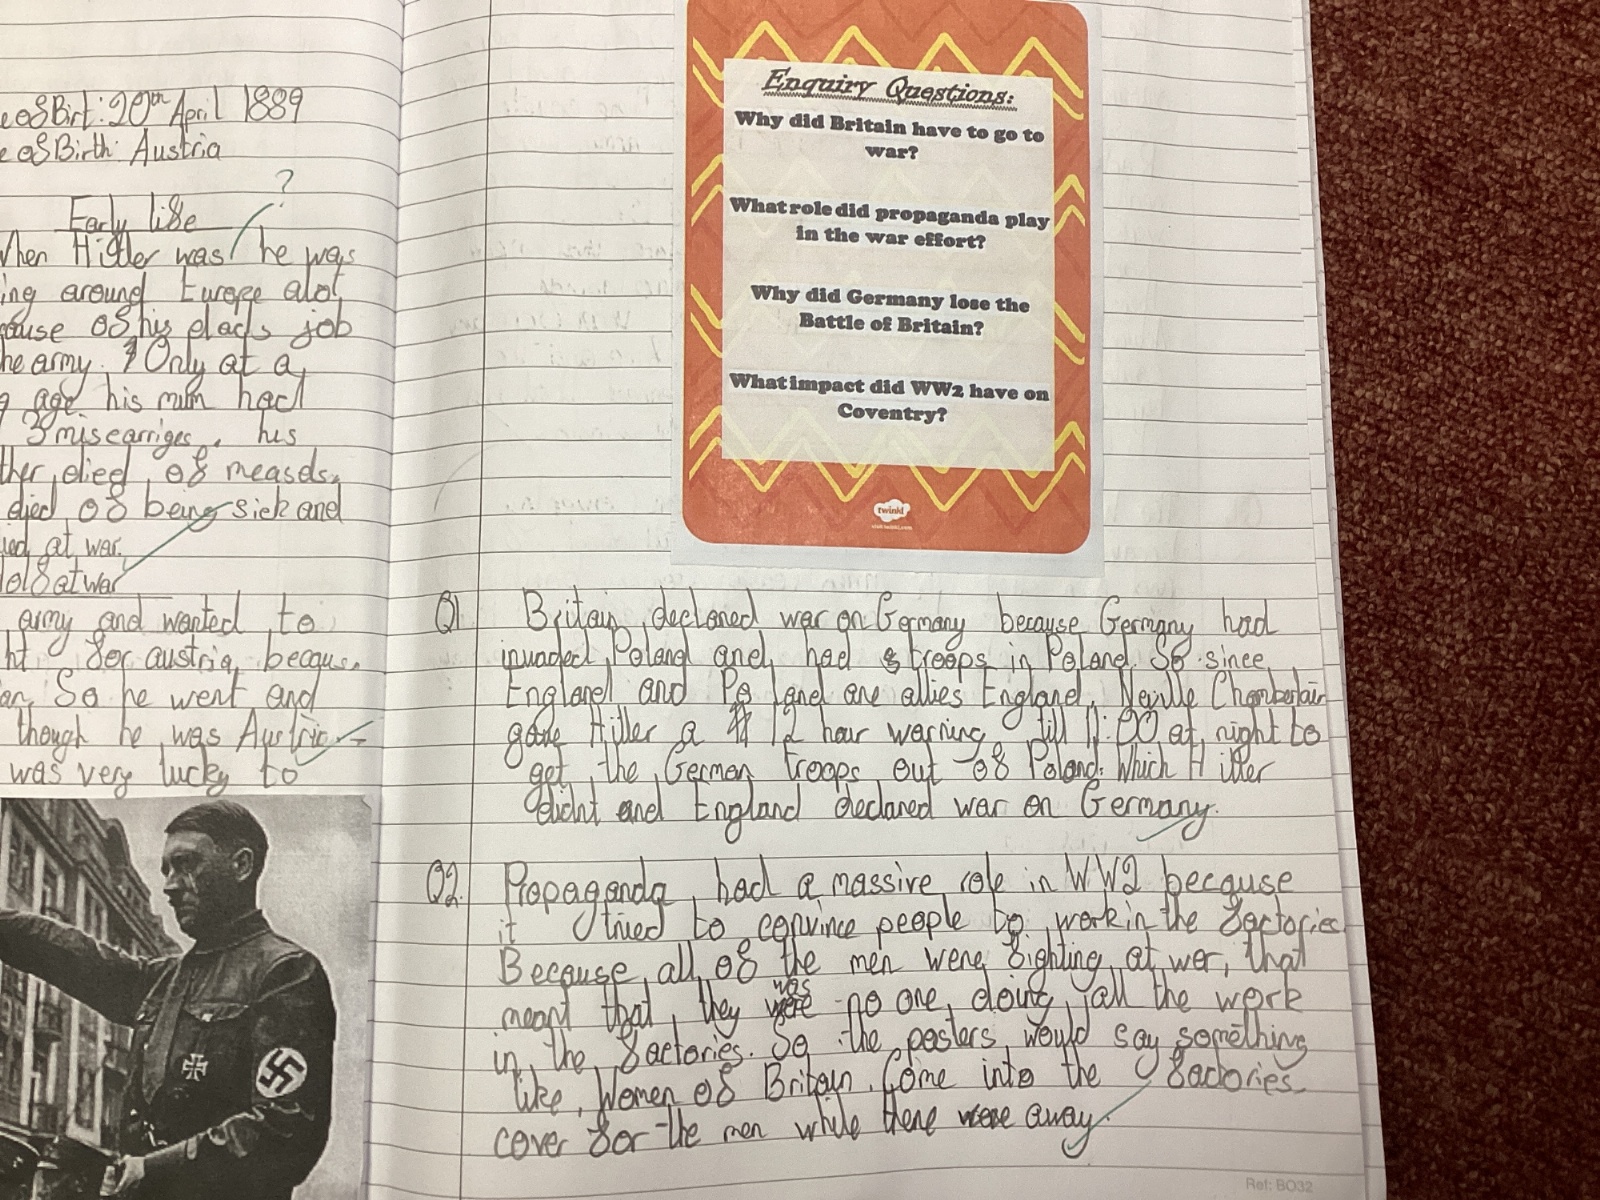 e of Birt: 20th April 1889
e of Birth: Austria
?
Early life
When Hitler was he was
ing around Europe alot
cause of his dads job
he army. Only at a
g age his mum had
3 miscarriges. his
ther died of measels.
died of being sick and
ied at war.
dolf at war
army and wanted to
ht for austria becaus
an. So he went and
though he was Austria
was very lucky to
Enquiry Questions:
Why did Britain have to go to
war?
What role did propaganda play
in the war effort?
Why did Germany lose the
Battle of Britain?
What impact did WW2 have on
Coventry?
twinkl
visit twinkl.com
Q1 Britain declared war on Germany because Germany had
invaded Poland and had troops in Poland. So since
England and Poland are allies England, Neville Chamberlain
gave Hitler a 12 hour warning till 11:00 at night to
get the German troops out of Poland. Which Hitler
didnt and England declared war on Germany.
Q2. Propaganda had a massive role in WW2 because
it tried to convince people to work in the factories
Because all of the men were fighting at war, that
was
meant that they were no one doing all the work
in the factories. So the posters would say something
like, Women of Britain. Come into the factories
cover for the men while there were away.
Ref: BO32